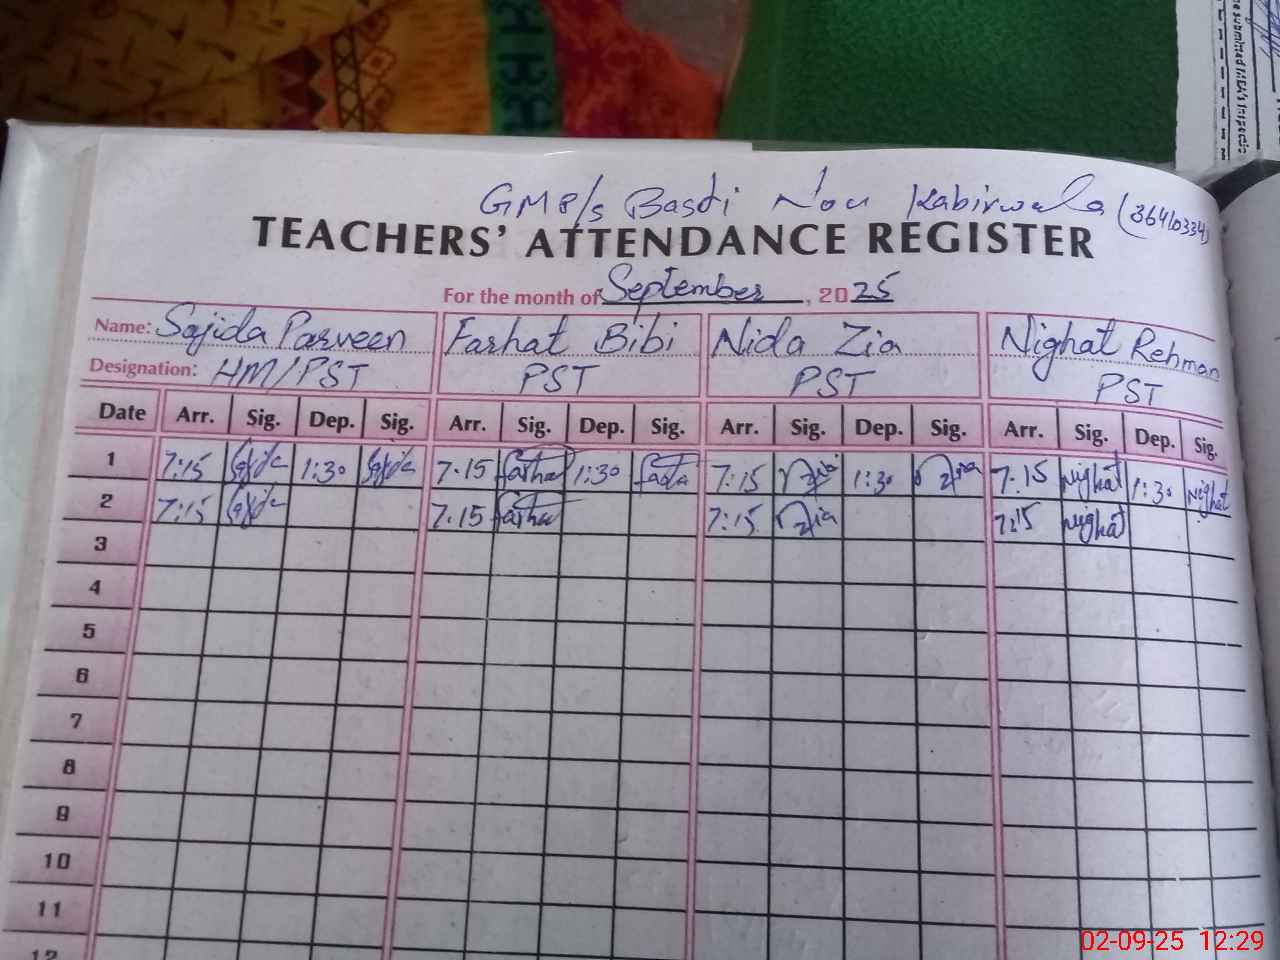 GMP/s Basti Nou Kabirwala (36410334)
TEACHERS' ATTENDANCE REGISTER
For the month of September, 2025
Name: Sajida Parveen Farhat Bibi Nida Zia Nighat Rehman
Designation: HM/PST PST PST PST
Date Arr. Sig. Dep. Sig. Arr. Sig. Dep. Sig. Arr. Sig. Dep. Sig. Arr. Sig. Dep. Sig.
1 7:15 Sajida 1:30 Sajida 7.15 Farhat 1:30 7:15 Nzia 1:30 Nzia 7:15 Nighat 1:30 Nighat
2 7:15 Sajida 7.15 Farhat 7:15 Nzia 7:15 Nighat
3
4
5
6
7
8
9
10
11
12
02-09-25 12:29